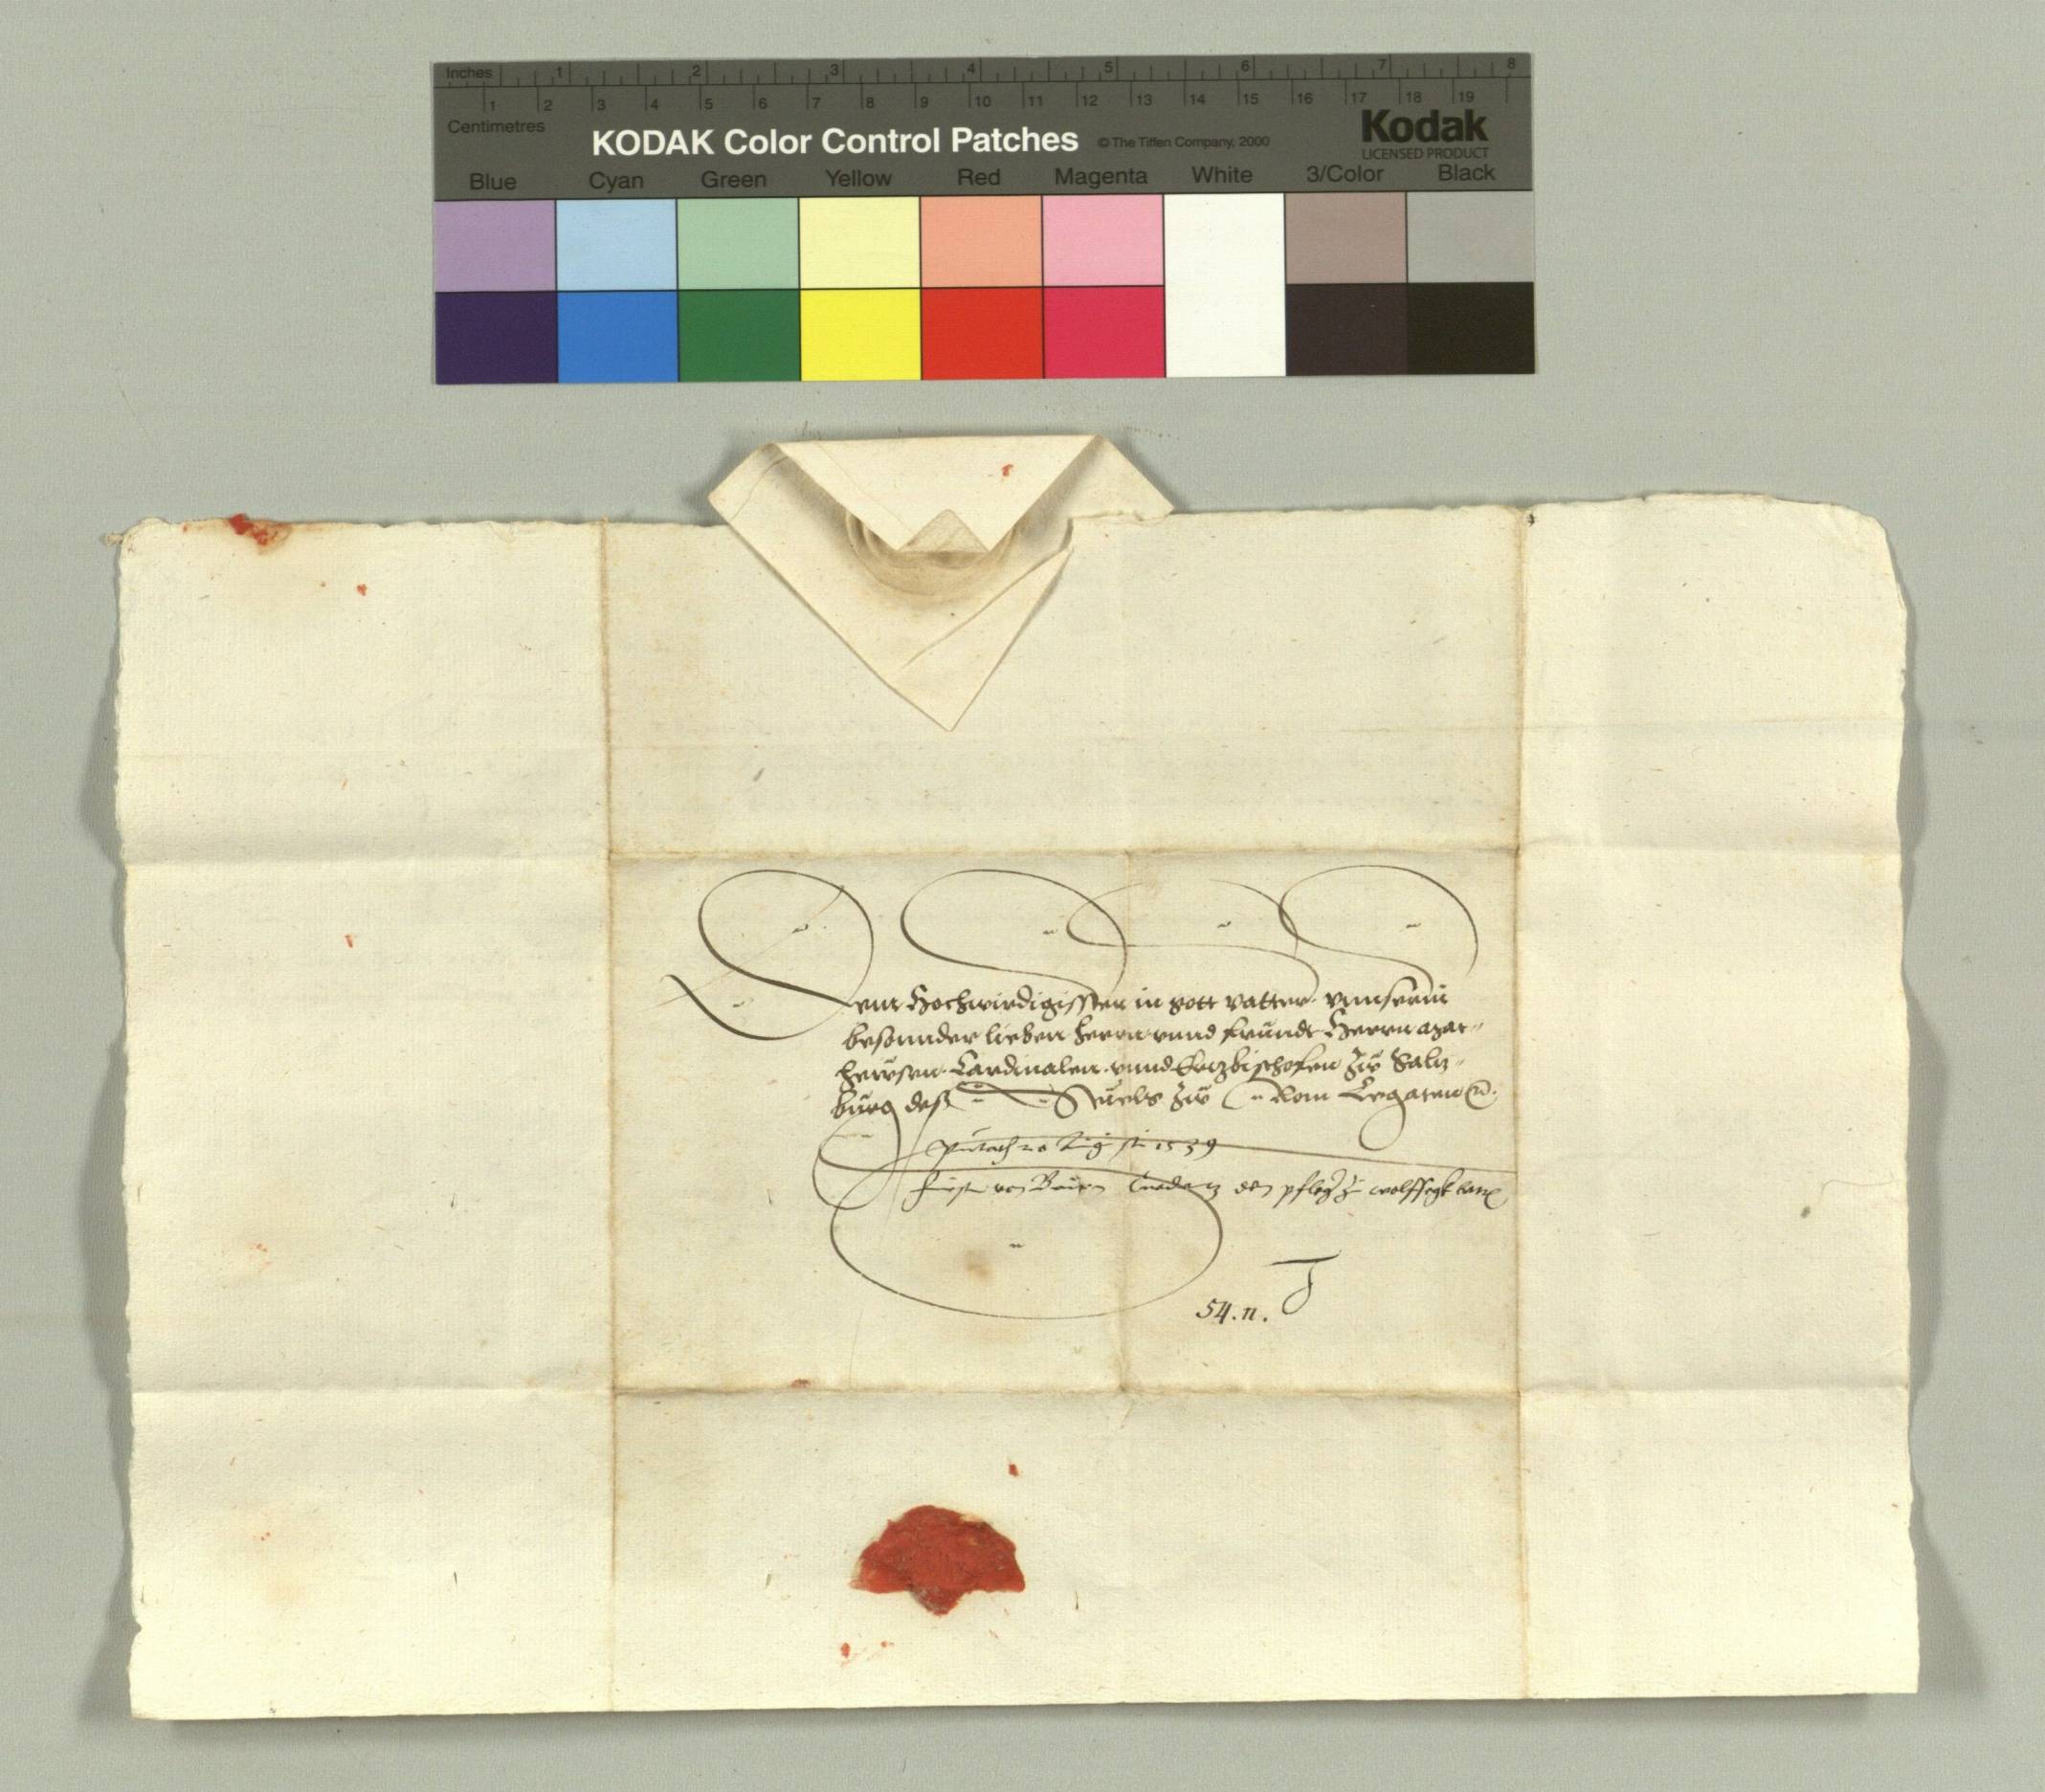 Inches 1 2 3 4 5 6 7 8
1 2 3 4 5 6 7 8 9 10 11 12 13 14 15 16 17 18 19
Centimetres
KODAK Color Control Patches © The Tiffen Company, 2000 Kodak
LICENSED PRODUCT
Blue Cyan Green Yellow Red Magenta White 3/Color Black
Dem Hochwirdigissten in gott vatter vnnserm
besonnder lieben herrn vnnd freundt Herrn Mat-
heusen Cardinalen vnnd Ertzbischofen zu Saltz-
burg deß Stuels zu Rom Legaten
1539
von Bairn Credentz den pfleger zu wolffegk
54.n.